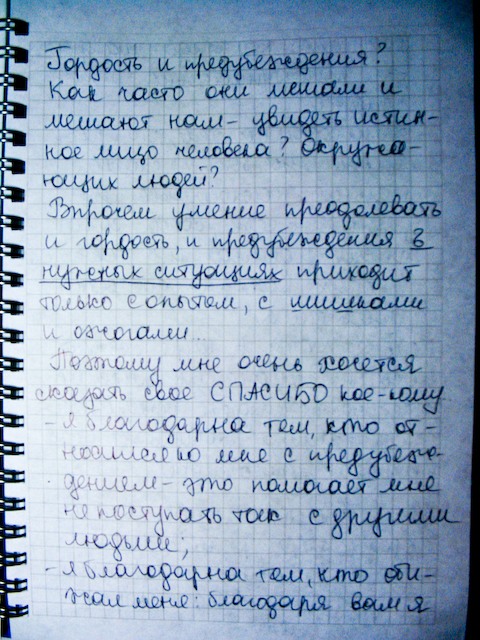 Гордость и предубеждения?
Как часто они мешали и
мешают нам - увидеть истин-
ное лицо человека? Окружа-
ющих людей?
Впрочем умение преодолевать
и гордость, и предубеждения в
нужных ситуациях приходит
только с опытом, с шишками
и ожогами...
Поэтому мне очень хочется
сказать свое СПАСИБО кое-кому
- я благодарна тем, кто от-
носится ко мне с предубеж-
дением - это помогает мне
не поступать так с другими
людьми;
- я благодарна тем, кто оби-
жал меня: благодаря вам я